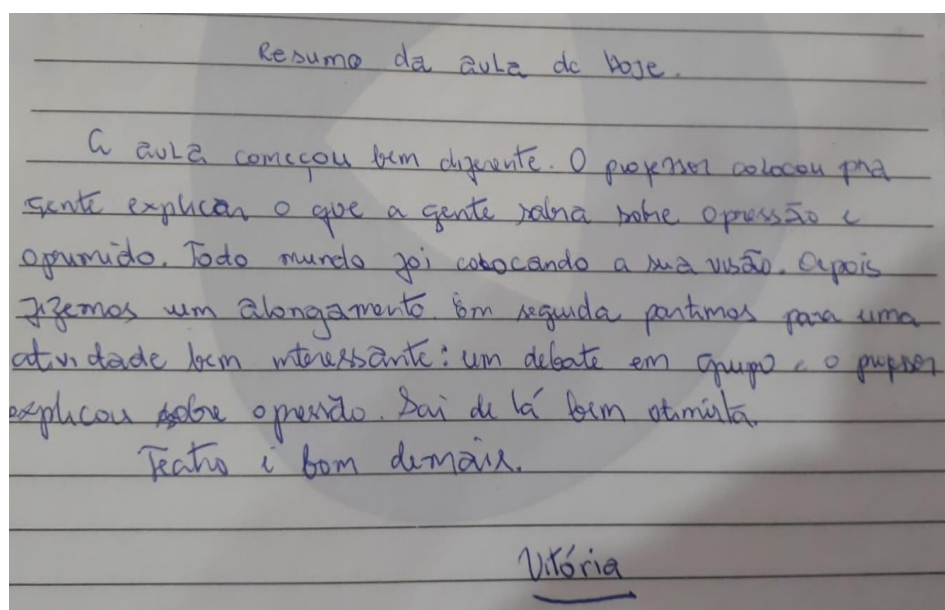 Resumo da aula de hoje.
A aula começou bem diferente. O professor colocou pra
gente explicar o que a gente sabia sobre opressão e
oprimido. Todo mundo foi colocando a sua visão. Depois
fizemos um alongamento. Em seguida partimos para uma
atividade bem interessante: um debate em grupo e o professor
explicou sobre opressão. Sai de lá bem otimista.
Teatro é bom demais.
Vitória